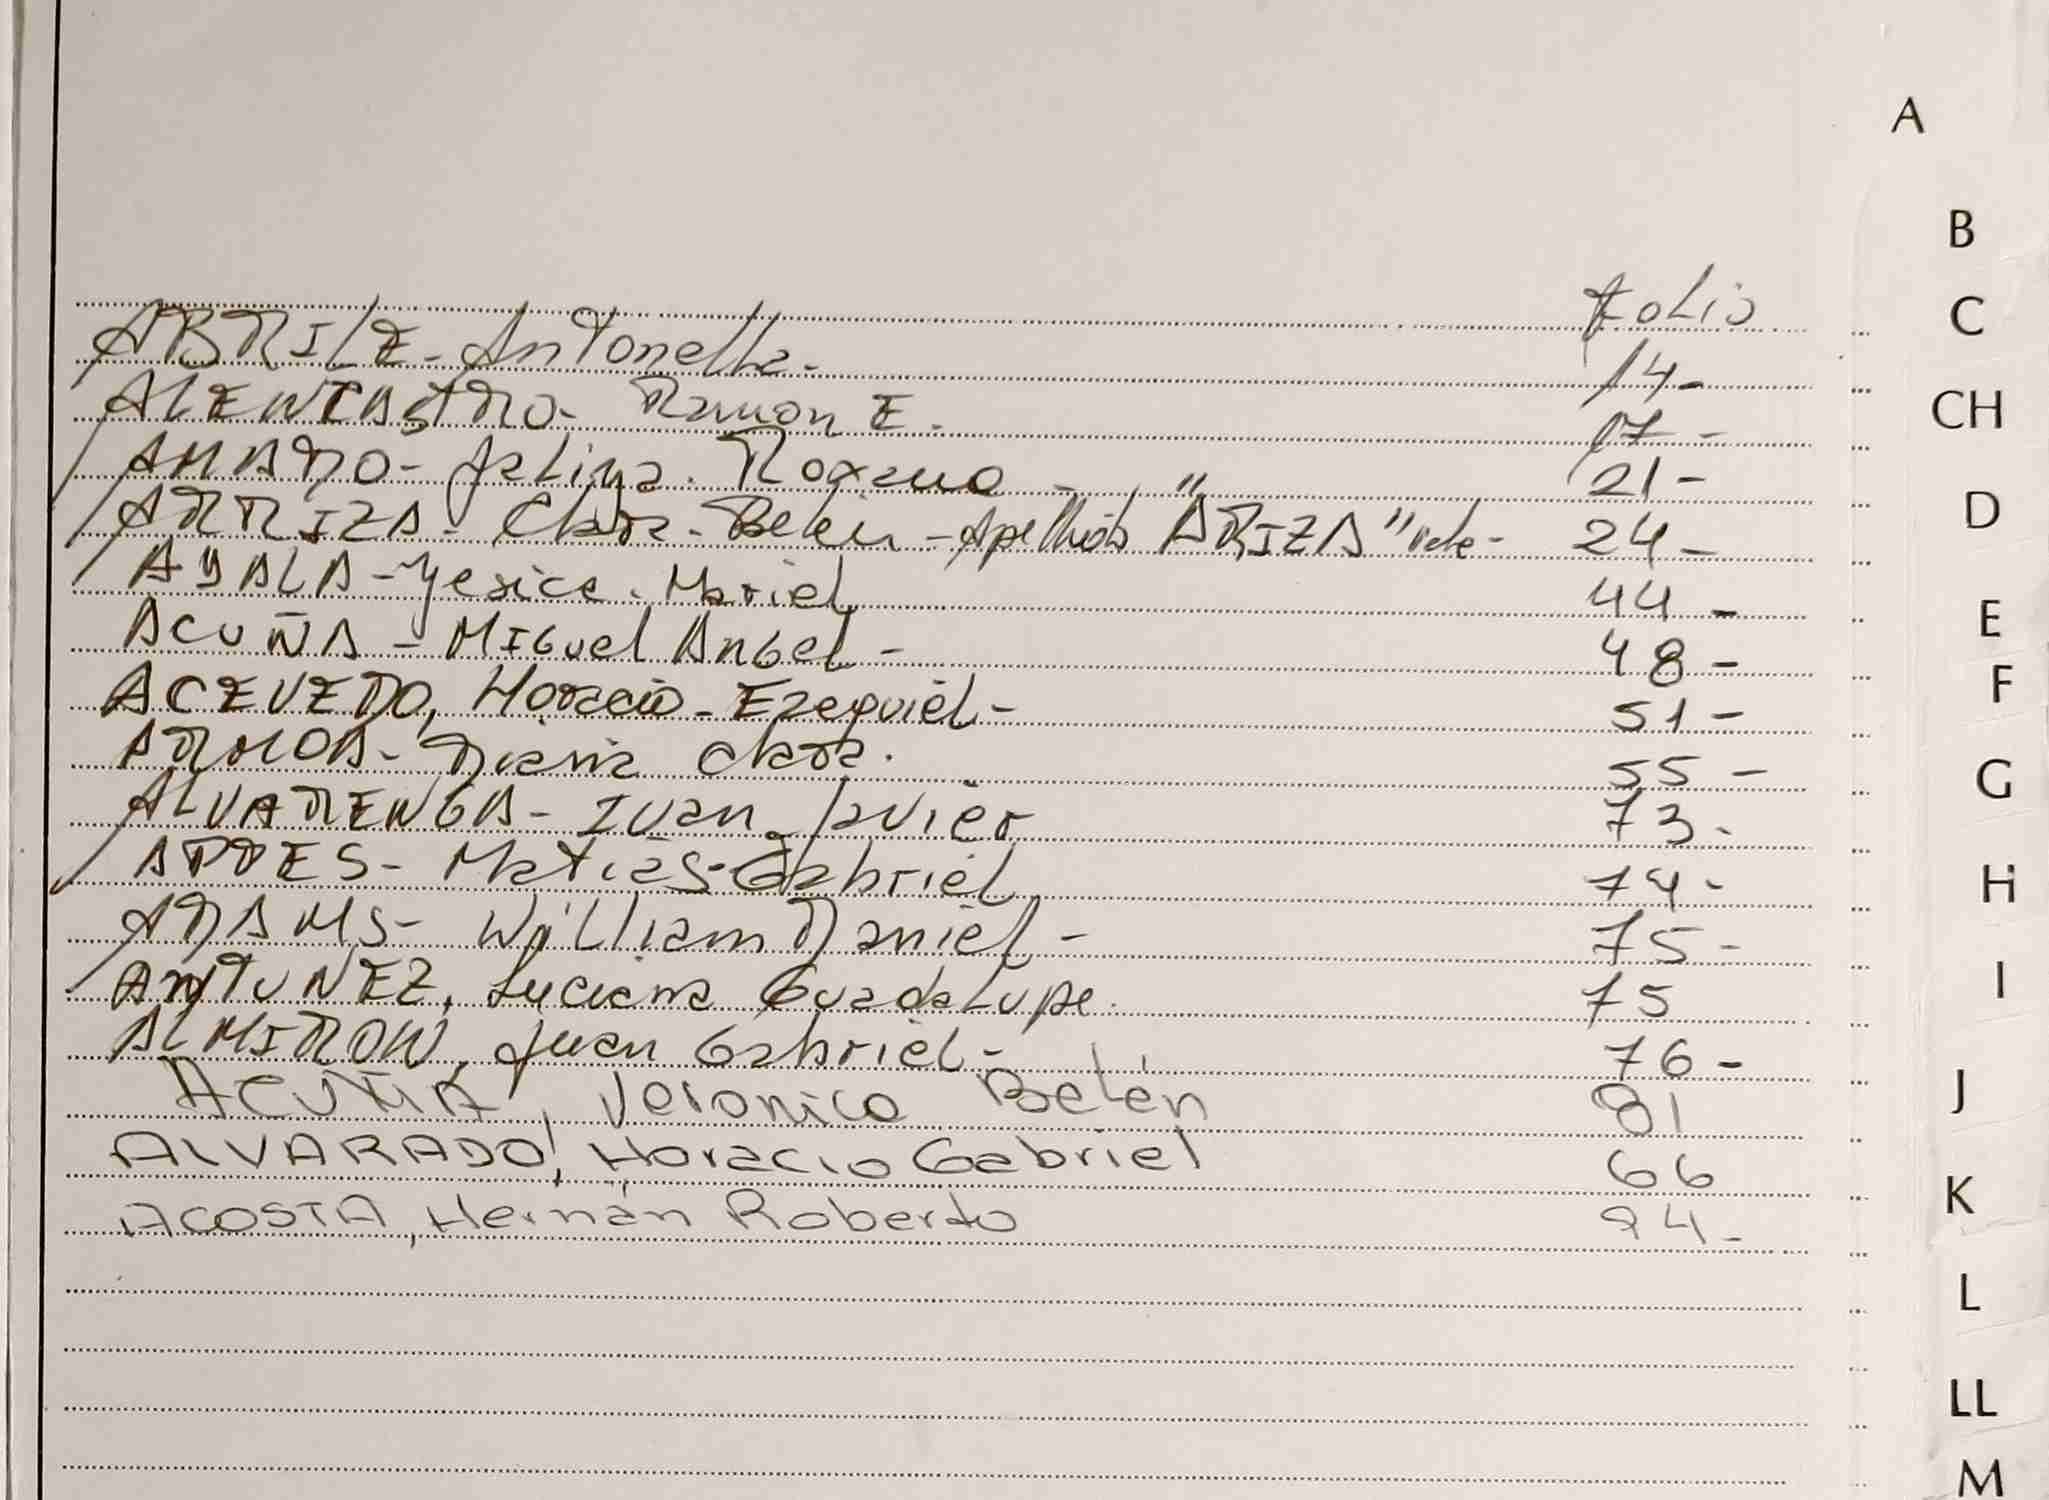 A
B
Folio
C
ABRILE - Antonella - 14 -
ALENCASTRO - Ramon E. 17 -
CH
AMADO - Jalina. Roxana - 21 -
D
ARRIZA - Clara - Belen - Apellido "ARIZA" vale - 24 -
AYALA - Yesica. Mariel 44 -
E
ACUÑA - Miguel Angel - 48 -
F
ACEVEDO, Horacio - Ezequiel - 51 -
ARMOA - Diana Clara. 55 -
G
ALVARENGA - Ivan Javier 73 -
Matias - Gabriel 74 -
H
ADAMS - William Daniel - 75 -
ANTUNEZ, Luciana Guadalupe. 75
I
ALMIRON, Juan Gabriel - 76 -
ACUÑA, Veronica Belén 81
J
ALVARADO, Horacio Gabriel 66
K
ACOSTA, Hernán Roberto 94 -
L
LL
M